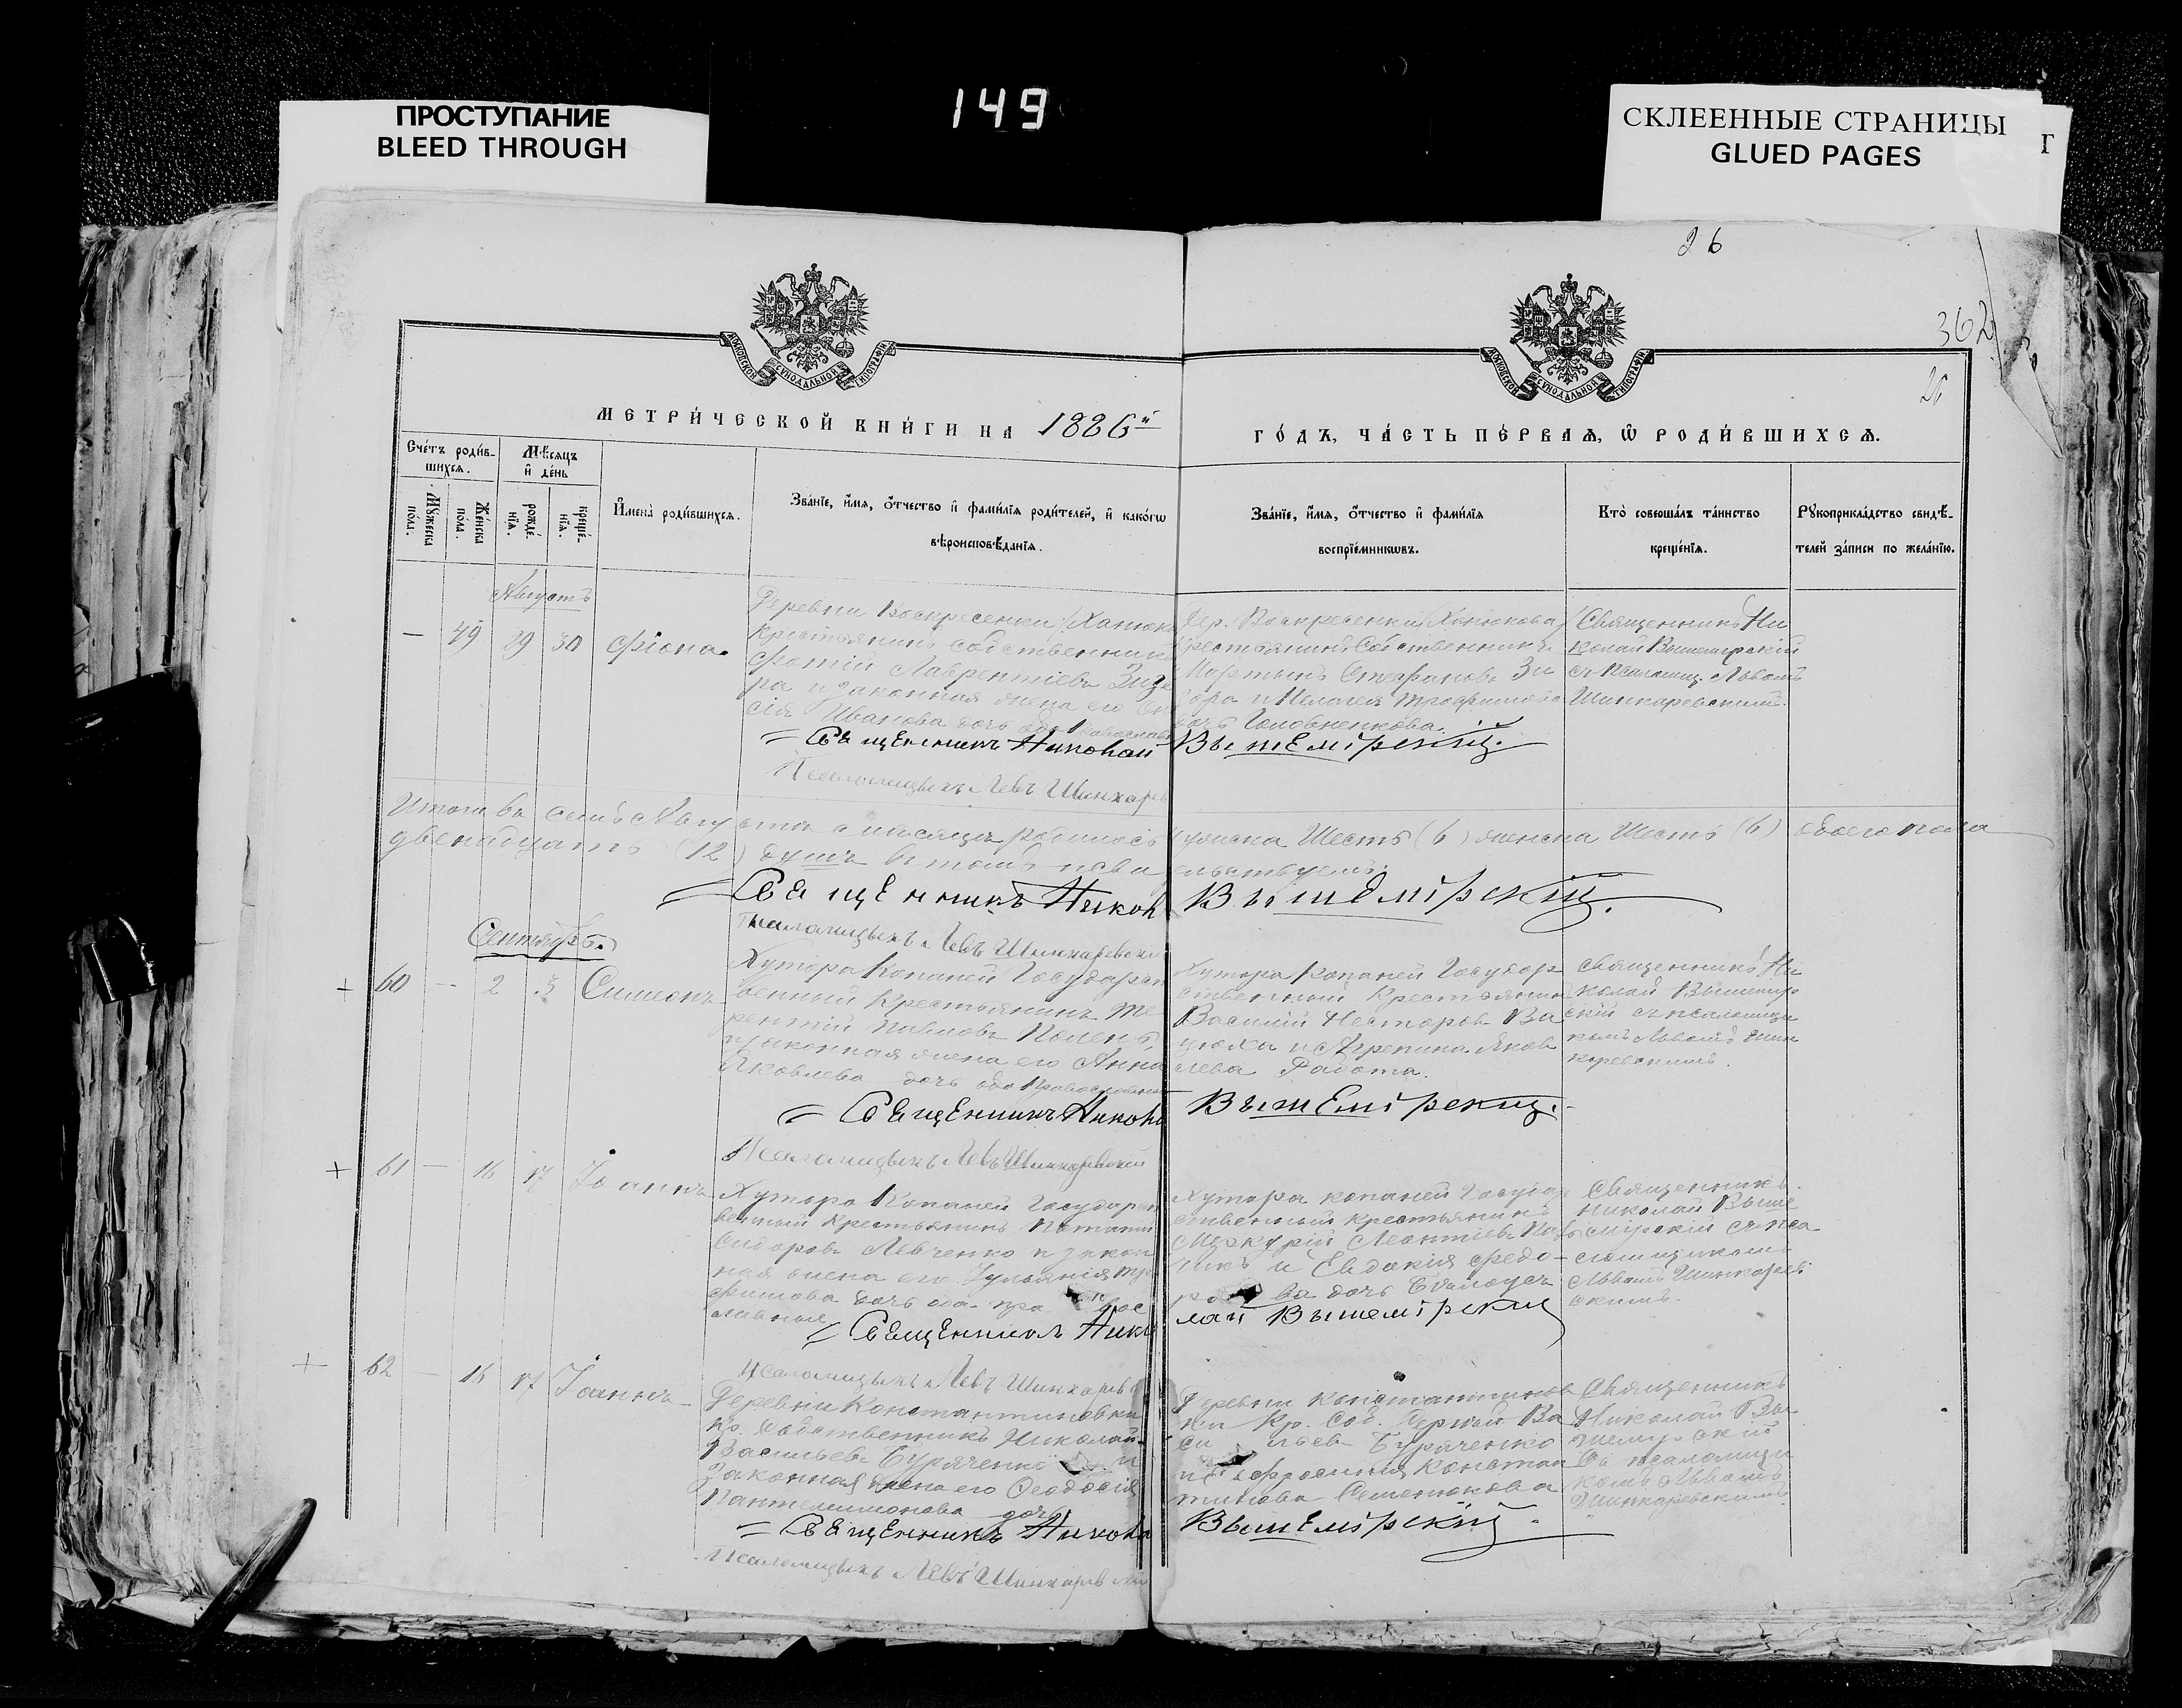 ПРОСТУПАНИЕ
BLEED THROUGH
149
СКЛЕЕННЫЕ СТРАНИЦЫ
GLUED PAGES
Г
26
362
26
МОСКОВСКОЙ СѴНОДАЛЬНОЙ ТИПОГРАФІИ
МОСКОВСКОЙ СѴНОДАЛЬНОЙ ТИПОГРАФІИ
МЕТРИ́ЧЕСКОЙ КНИ́ГИ НА 1886й
ГО́ДЪ, ЧА́СТЬ ПЕ́РВАѦ, Ѽ РОДИ́ВШИХСѦ.
Сче́тъ роди́в-
шихсѧ.
Мꙋ́жеска по́ла.
Же́нска по́ла.
Мѣ́сѧцъ
и҆ де́нь
рожде́-
нїѧ.
креще́-
нїѧ.
И҆мена̀ роди́вшихсѧ.
Зва́нїе, и҆́мѧ, ѻ҆́тчество и҆ фами́лїѧ роди́телей, и҆ како́гѡ
вѣроисповѣ́данїѧ.
Зва́нїе, и҆́мѧ, ѻ҆́тчество и҆ фами́лїѧ
воспрїе́мникѡвъ.
Кто̀ соверша́лъ та́инство
креще́нїѧ.
Рꙋкоприкла́дство свидѣ́-
телей за́писи по жела́нїю.
Августъ
— 49 29 30 Фіона.
Деревни Воскресенки (Ханюко
Крестьянинъ собственникъ
Фотій Лаврентіевъ Зиго
ра и законная жена его
сія Иванова дочь оба православн
Дер. Воскресенки (Ханюкова)
Крестьянинъ Собственникъ
Мартынъ Стефановъ Зи
гора и Пелагея Трофимова
дочь Головненкова.
Священникъ Ни
колай Вышемірскій
съ псаломщ. Львомъ
Шинкаревскимъ.
Священникъ Николай Вышемірскій.
Псаломщикъ Левъ Шинкарев
Итого въ семъ Августа мѣсяцѣ родилось мужска Шесть (6) женска Шесть (6) обоего пола
двенадцать (12) душъ въ томъ и свидѣтельствуемъ
Священникъ Никол Вышемірскій.
Псаломщикъ Левъ Шинкаревскій
Сентябрь.
+ 60 — 2 3 Симеонъ
Хутора Копаней Государст
венный Крестьянинъ Те
рентій Павловъ
и законная жена его Анна
Яковлева дочь оба православны
Хутора Копаней Государ
ственный Крестьянинъ
Василій Несторовъ Ва
цюха и Агрепина Яков
лева Работа.
Священникъ Ни
колай Вышемір
скій съ псаломщи
комъ Львомъ Шин
каревскимъ.
Священникъ Никола Вышемірскій.
Псаломщикъ Левъ Шинкаревскій
+ 61 — 16 17 Іоаннъ
Хутора Копаней Государст
венный Крестьянинъ Потапій
Сидоровъ Левченко и закон
ная жена его Іуліанія Тро
фимова дочь оба пра вос
лавные
Хутора Копаней Государ
ственный крестьянинъ
Меркурій Леонтіевъ
и Евдокія Федо-
ро ва дочь Бѣлоусъ
Священникъ
Николай Выше
мірскій съ пса
ломщикомъ
Львомъ Шинкарев
скимъ.
Священникъ Николай Вышемірскій
Псаломщикъ Левъ Шинкарев
+ 62 — 16 17 Іоаннъ
Деревни Константиновки
Кр. Собственникъ Николай
Васильевъ Буряченко и
Законная жена его Феодосія
Пантелимонова дочь
Деревни Константинов
ки Кр. Соб. Ва
си льевъ Буряченко
и Ефросинія Констан
тинова Семенюкова
Священникъ
Николай Вы
шемірскій
съ псаломщи
комъ Львомъ
Шинкаревскимъ
Священникъ Никола Вышемірскій.
Псаломщикъ Левъ Шинкаревскій